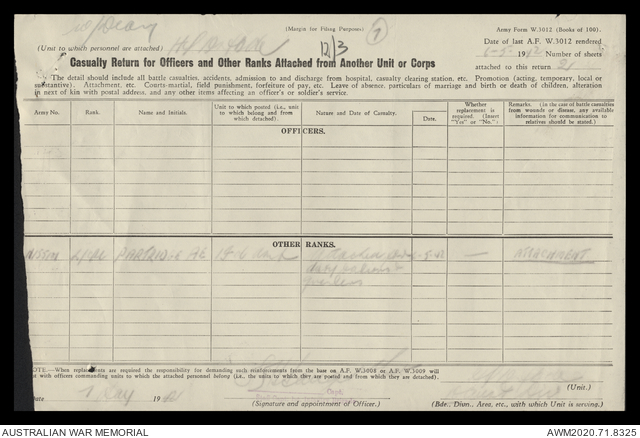 (Margin for Filing Purposes)
Army Form W.3012 (Books of 100).
Date of last A.F. W.3012 rendered
(Unit to which personnel are attached)
12/3
Number of sheets
attached to this return
Casualty Return for Officers and Other Ranks Attached from Another Unit or Corps
The detail should include all battle casualties, accidents, admission to and discharge from hospital, casualty clearing station, etc. Promotion (acting, temporary, local or
substantive). Attachment, etc. Courts-martial, field punishment, forfeiture of pay, etc. Leave of absence, particulars of marriage and birth or death of children, alteration
in next of kin with postal address, and any other items affecting an officer's or soldier's service.
Army No.
Rank.
Name and Initials.
Unit to which posted (i.e., unit
to which belong and from
which detached).
Nature and Date of Casualty.
Date.
Whether
replacement is
required. (Insert
"Yes" or "No.":
Remarks. (In the case of battle casualties
from wounds or disease, any available
information for communication to
relatives should be stated.)
OFFICERS.
OTHER RANKS.
PARTRIDGE
ATTACHMENT
NOTE.—When replacements are required the responsibility for demanding such reinforcements from the base on A.F. W.3008 or A.F. W.3009 will
rest with officers commanding units to which the attached personnel belong (i.e., the units to which they are posted and from which they are detached).
(Unit.)
Date
May 19
(Signature and appointment of Officer.)
(Bde., Divn., Area, etc., with which Unit is serving.)
AUSTRALIAN WAR MEMORIAL
AWM2020.71.8325